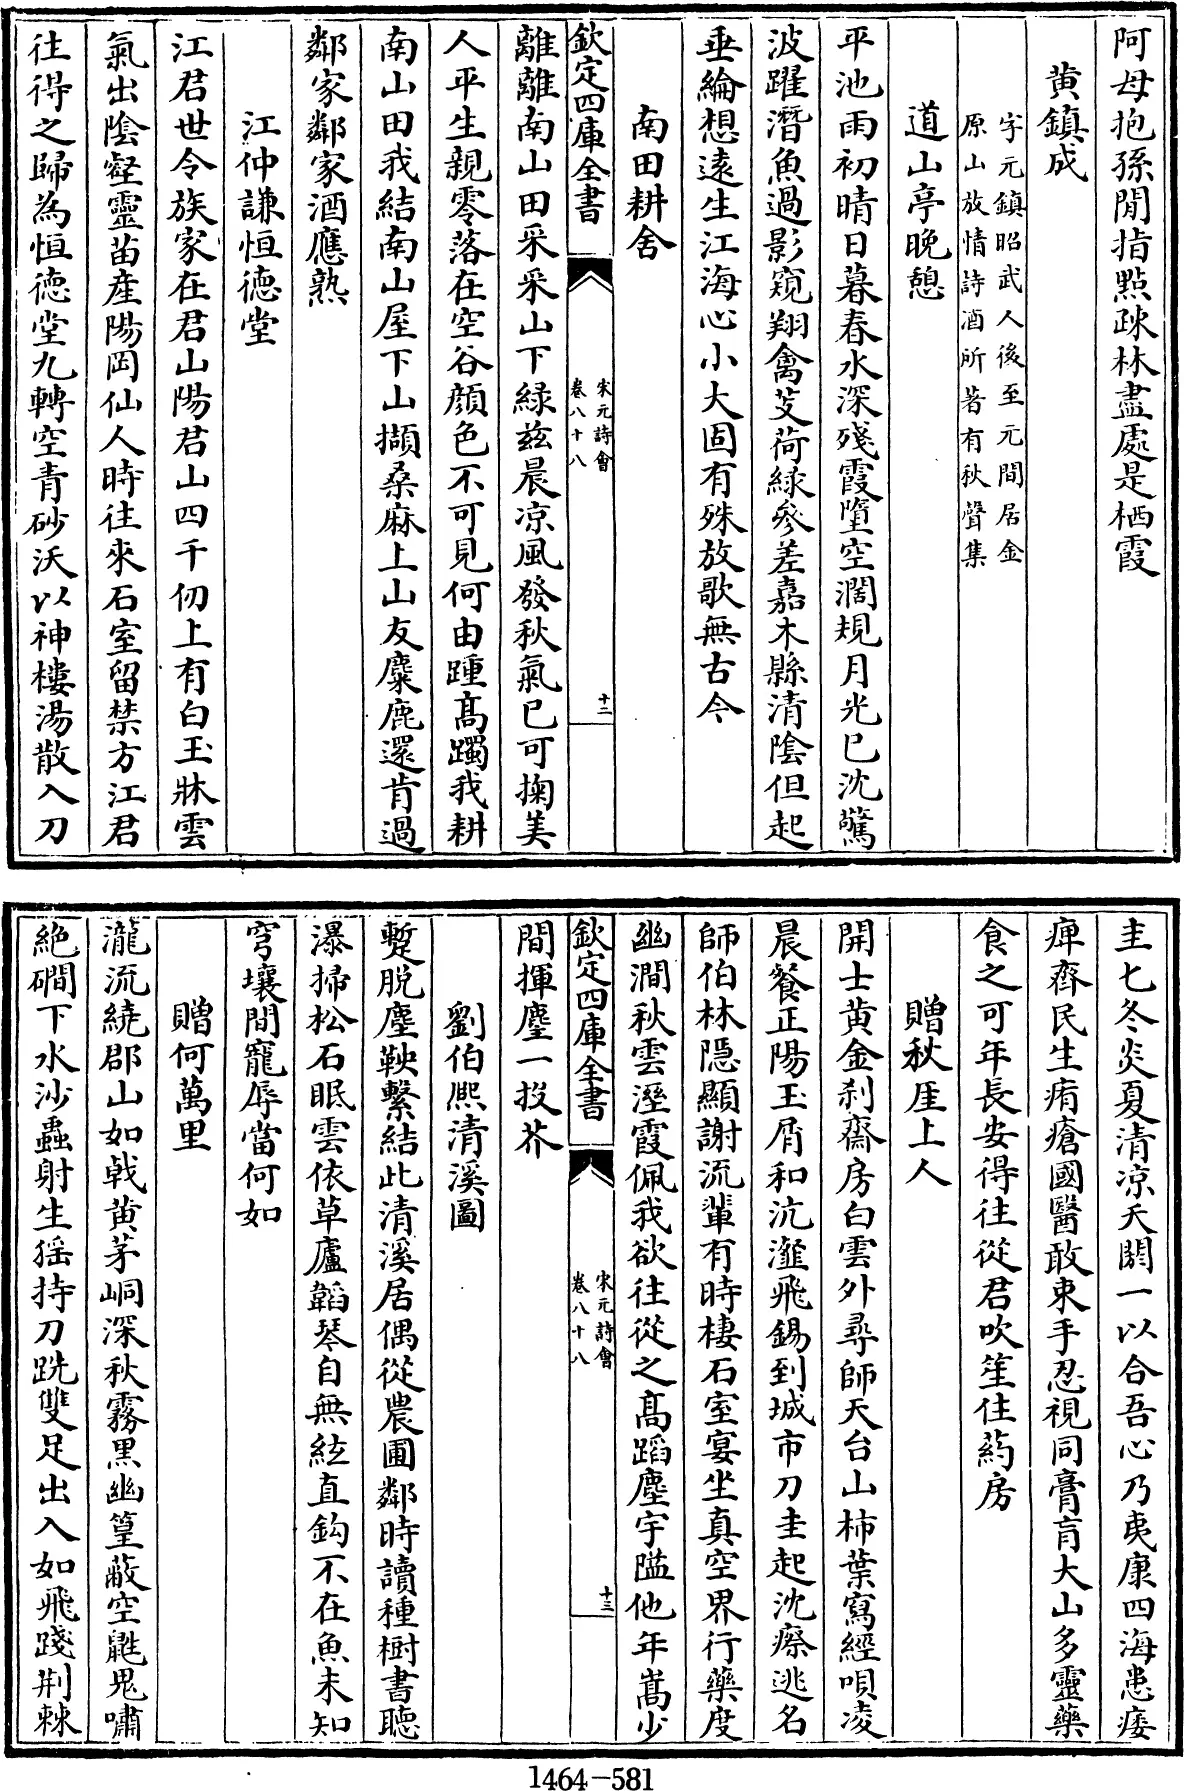 阿母抱孫閒指點疎林盡處是栖霞
黄鎮成
字元鎮昭武人後至元間居金
原山放情詩酒所著有秋聲集
道山亭晩憩
平池雨初晴日暮春水深殘霞墮空濶規月光已沈驚
波躍潛魚過影窺翔禽芰荷緑參差嘉木緜清陰但起
垂綸想遠生江海心小大固有殊放歌無古今
南田耕舍
欽定四庫全書
宋元詩會
卷八十八
十二
離離南山田采采山下緑兹晨凉風發秋氣已可掬美
人平生親零落在空谷顔色不可見何由踵髙躅我耕
南山田我結南山屋下山擷桑麻上山友麋鹿還肯過
鄰家鄰家酒應熟
江仲謙恒德堂
江君世令族家在君山陽君山四千仞上有白玉牀雲
氣出陰壑靈苗産陽岡仙人時往來石室留禁方江君
往得之歸為恒徳堂九轉空青砂沃以神樓湯散入刀
圭七冬炎夏清凉天閼一以合吾心乃夷康四海患痿
痺齊民生痏瘡國醫敢束手忍視同膏肓大山多靈藥
食之可年長安得往從君吹笙住葯房
贈秋厓上人
開士黄金刹齋房白雲外尋師天台山柿葉寫經唄凌
晨餐正陽玉屑和沆瀣飛錫到城市刀圭起沈瘵逃名
師伯林隠顯謝流輩有時棲石室宴坐真空界行藥度
幽澗秋雲溼霞佩我欲往從之髙蹈塵宇隘他年嵩少
欽定四庫全書
宋元詩會
卷八十八
十三
間揮麈一投芥
劉伯熈清溪圖
蹔脱塵鞅繫結此清溪居偶從農圃鄰時讀種樹書聴
瀑掃松石眠雲依草廬韜琴自無絃直鈎不在魚未知
穹壤間寵辱當何如
贈何萬里
瀧流繞郡山如㦸黄茅峒深秋霧黒幽篁蔽空鼪鬼嘯
絶磵下水沙蟲射生猺持刀跣雙足出入如飛踐荆棘
1464-581